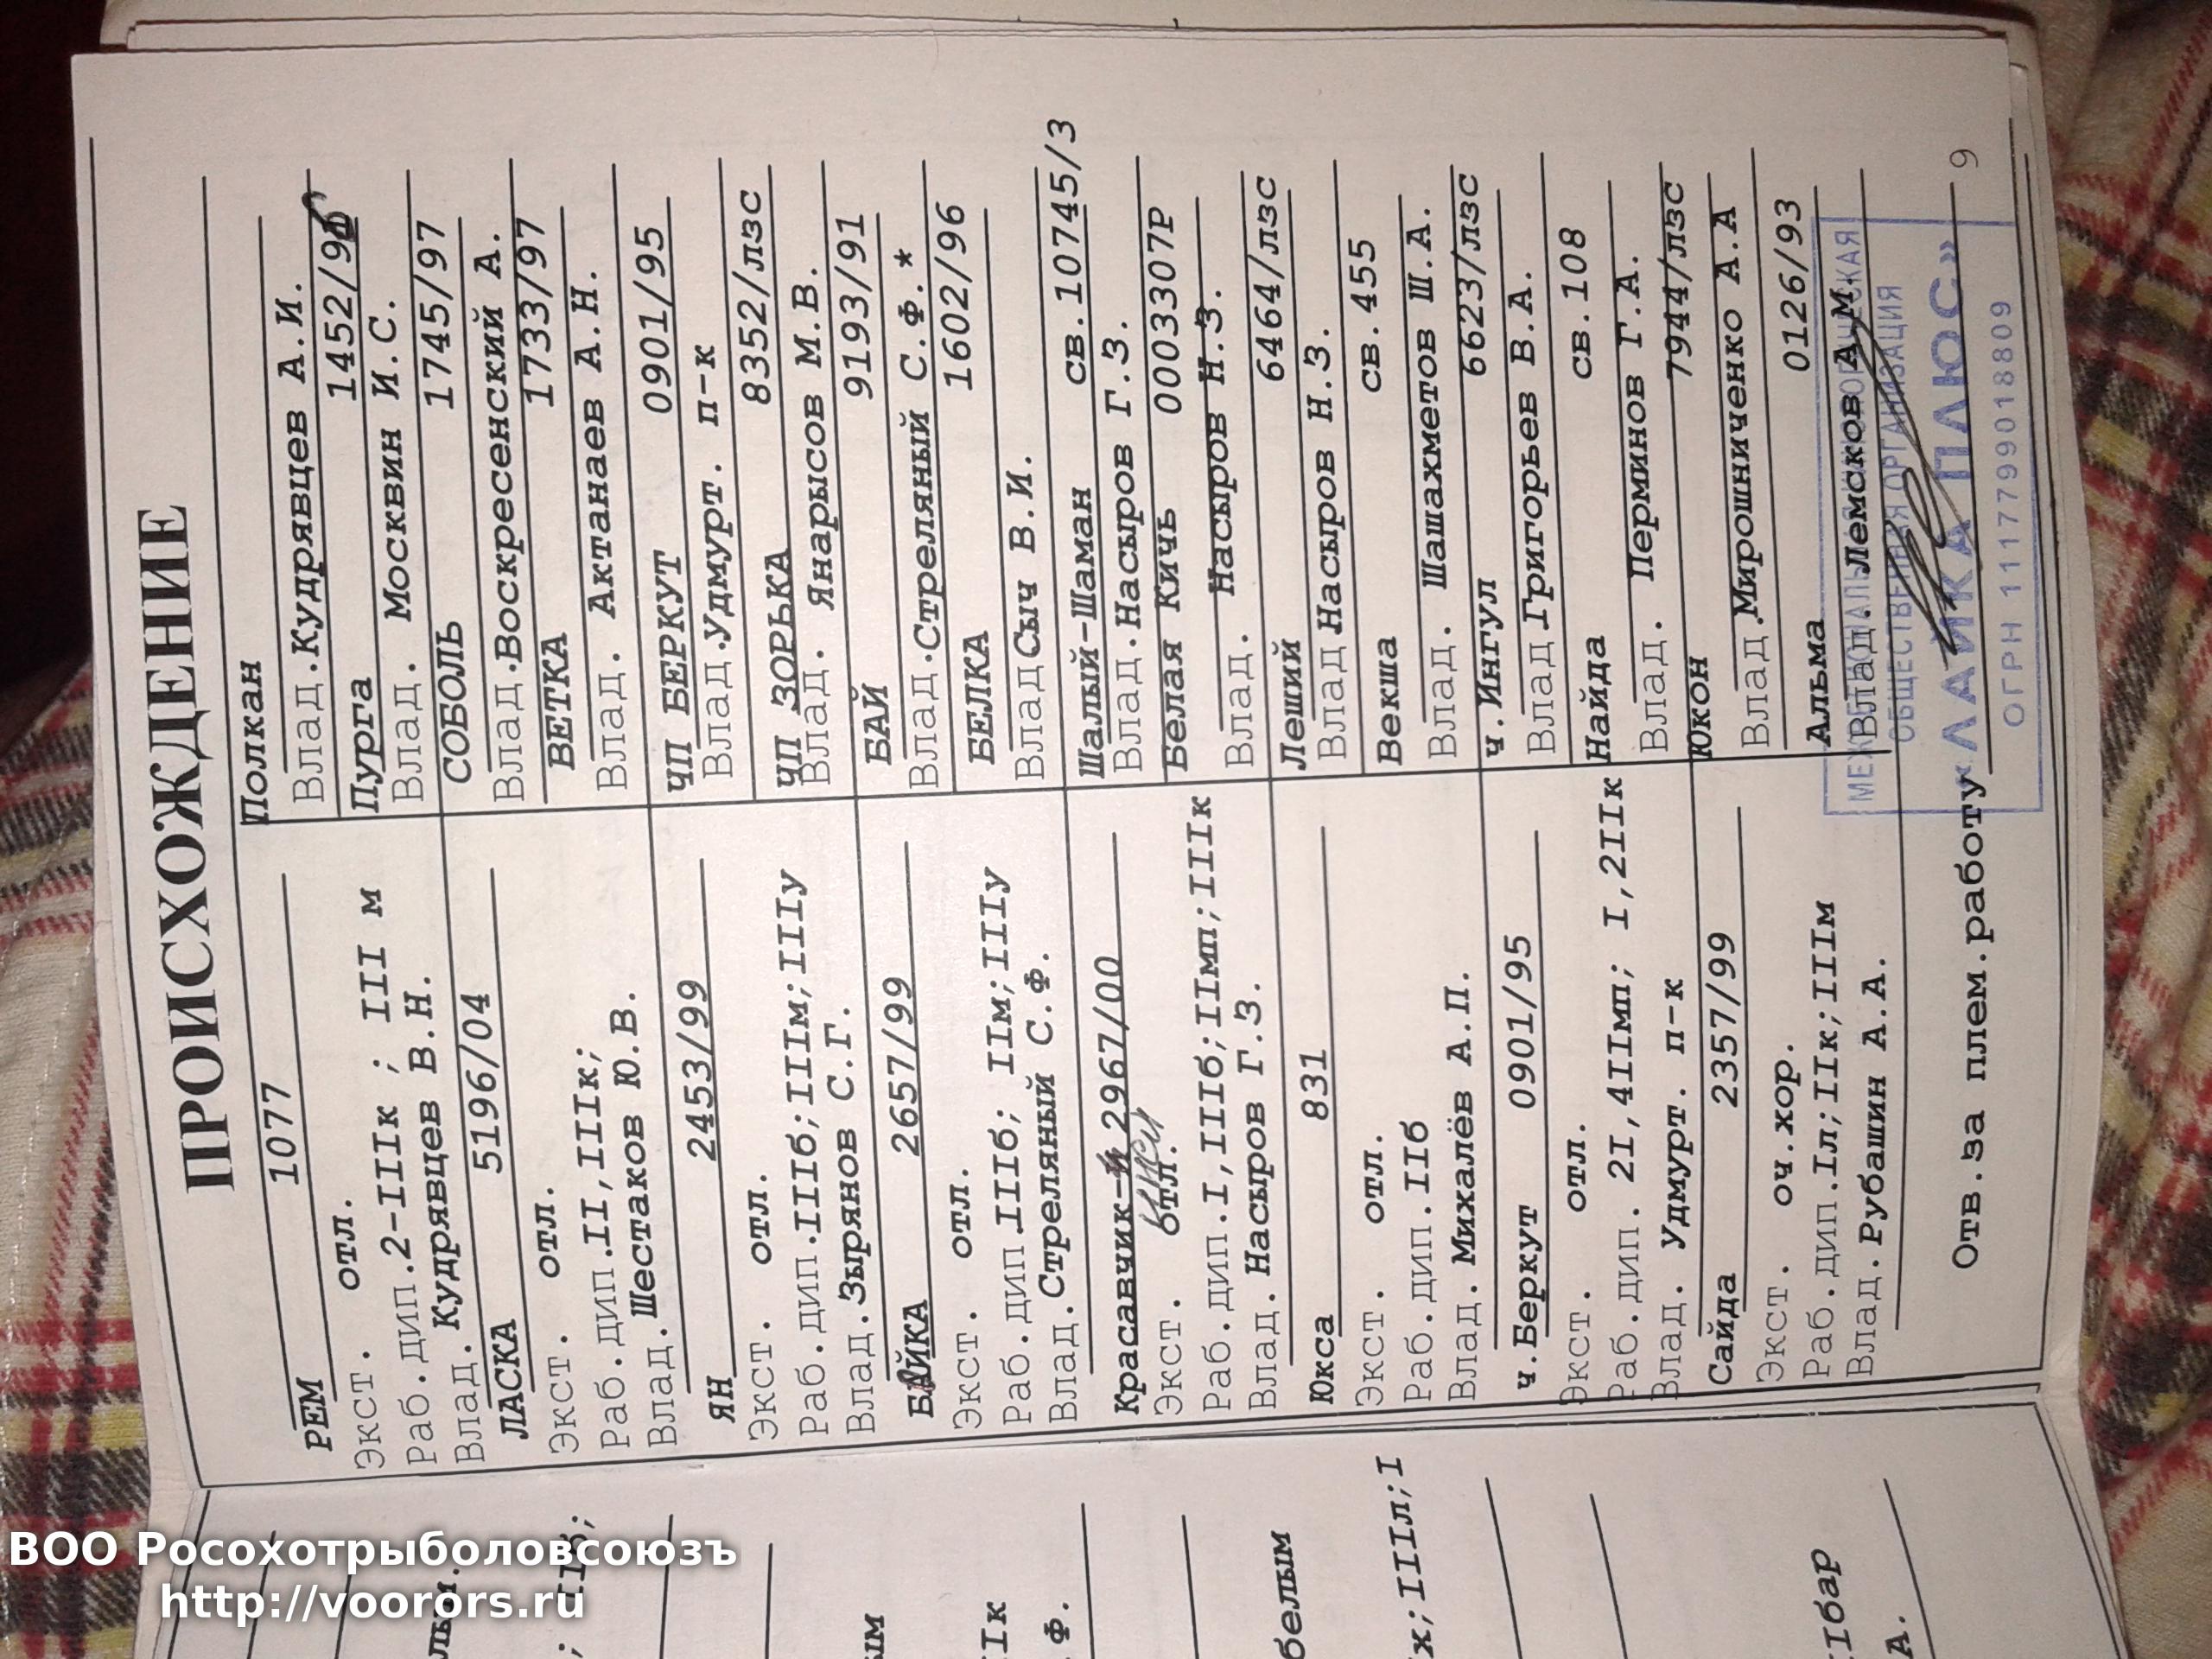 ПРОИСХОЖДЕНИЕ
РЕМ 1077
Экст. отл.
Раб.дип.2-IIIк ; III м
Влад. Кудрявцев В.Н.
ЛАСКА 5196/04
Экст. отл.
Раб.дип.II,IIIк;
Влад.Шестаков Ю.В.
ЯН 2453/99
Экст. отл.
Раб.дип.IIIб;IIIм;IIIу
Влад.Зырянов С.Г.
БАЙКА 2657/99
Экст. отл.
Раб.дип.IIIб; IIм;IIIу
Влад.Стреляный С.Ф.
Красавчик-й 2967/00
Экст. отл.
Раб.дип.I,IIIб;IIмп;IIIк
Влад.Насыров Г.З.
Юкса 831
Экст. отл.
Раб.дип.IIб
Влад.Михалёв А.П.
ч.Беркут 0901/95
Экст. отл.
Раб.дип. 2I,4IIмп; I,2IIк
Влад. Удмурт. п-к
Сайда 2357/99
Экст. оч.хор.
Раб.дип.Iл;IIк;IIIм
Влад.Рубашин А.А.
Полкан
Влад.Кудрявцев А.И.
Пурга 1452/96
Влад. Москвин И.С.
СОБОЛЬ 1745/97
Влад.Воскресенский А.
ВЕТКА 1733/97
Влад. Актанаев А.Н.
ЧП БЕРКУТ 0901/95
Влад.Удмурт. п-к
ЧП ЗОРЬКА 8352/лзс
Влад. Янарысов М.В.
БАЙ 9193/91
Влад.Стреляный С.Ф.*
БЕЛКА 1602/96
Влад Сыч В.И.
Шалый-Шаман св.10745/3
Влад.Насыров Г.З.
Белая Кичь 0003307Р
Влад. Насыров Н.З.
Леший 6464/лзс
Влад Насыров Н.З.
Векша св.455
Влад. Шашахметов Ш.А.
ч.Ингул 6623/лзс
Влад Григорьев В.А.
Найда св.108
Влад. Перминов Г.А.
Юкон 7944/лзс
Влад Мирошниченко А.А
Альма 0126/93
Влад. Лемсков А М
МЕЖРЕГИОНАЛЬНАЯ КИНОЛОГИЧЕСКАЯ
ОБЩЕСТВЕННАЯ ОРГАНИЗАЦИЯ
«ЛАЙКА ПЛЮС»
ОГРН 1117799018809
Отв.за плем.работу
9
белым
х;IIIл;I
IIбар
А.
Ф.
ВОО Росохотрыболовсоюзъ
http://voorors.ru